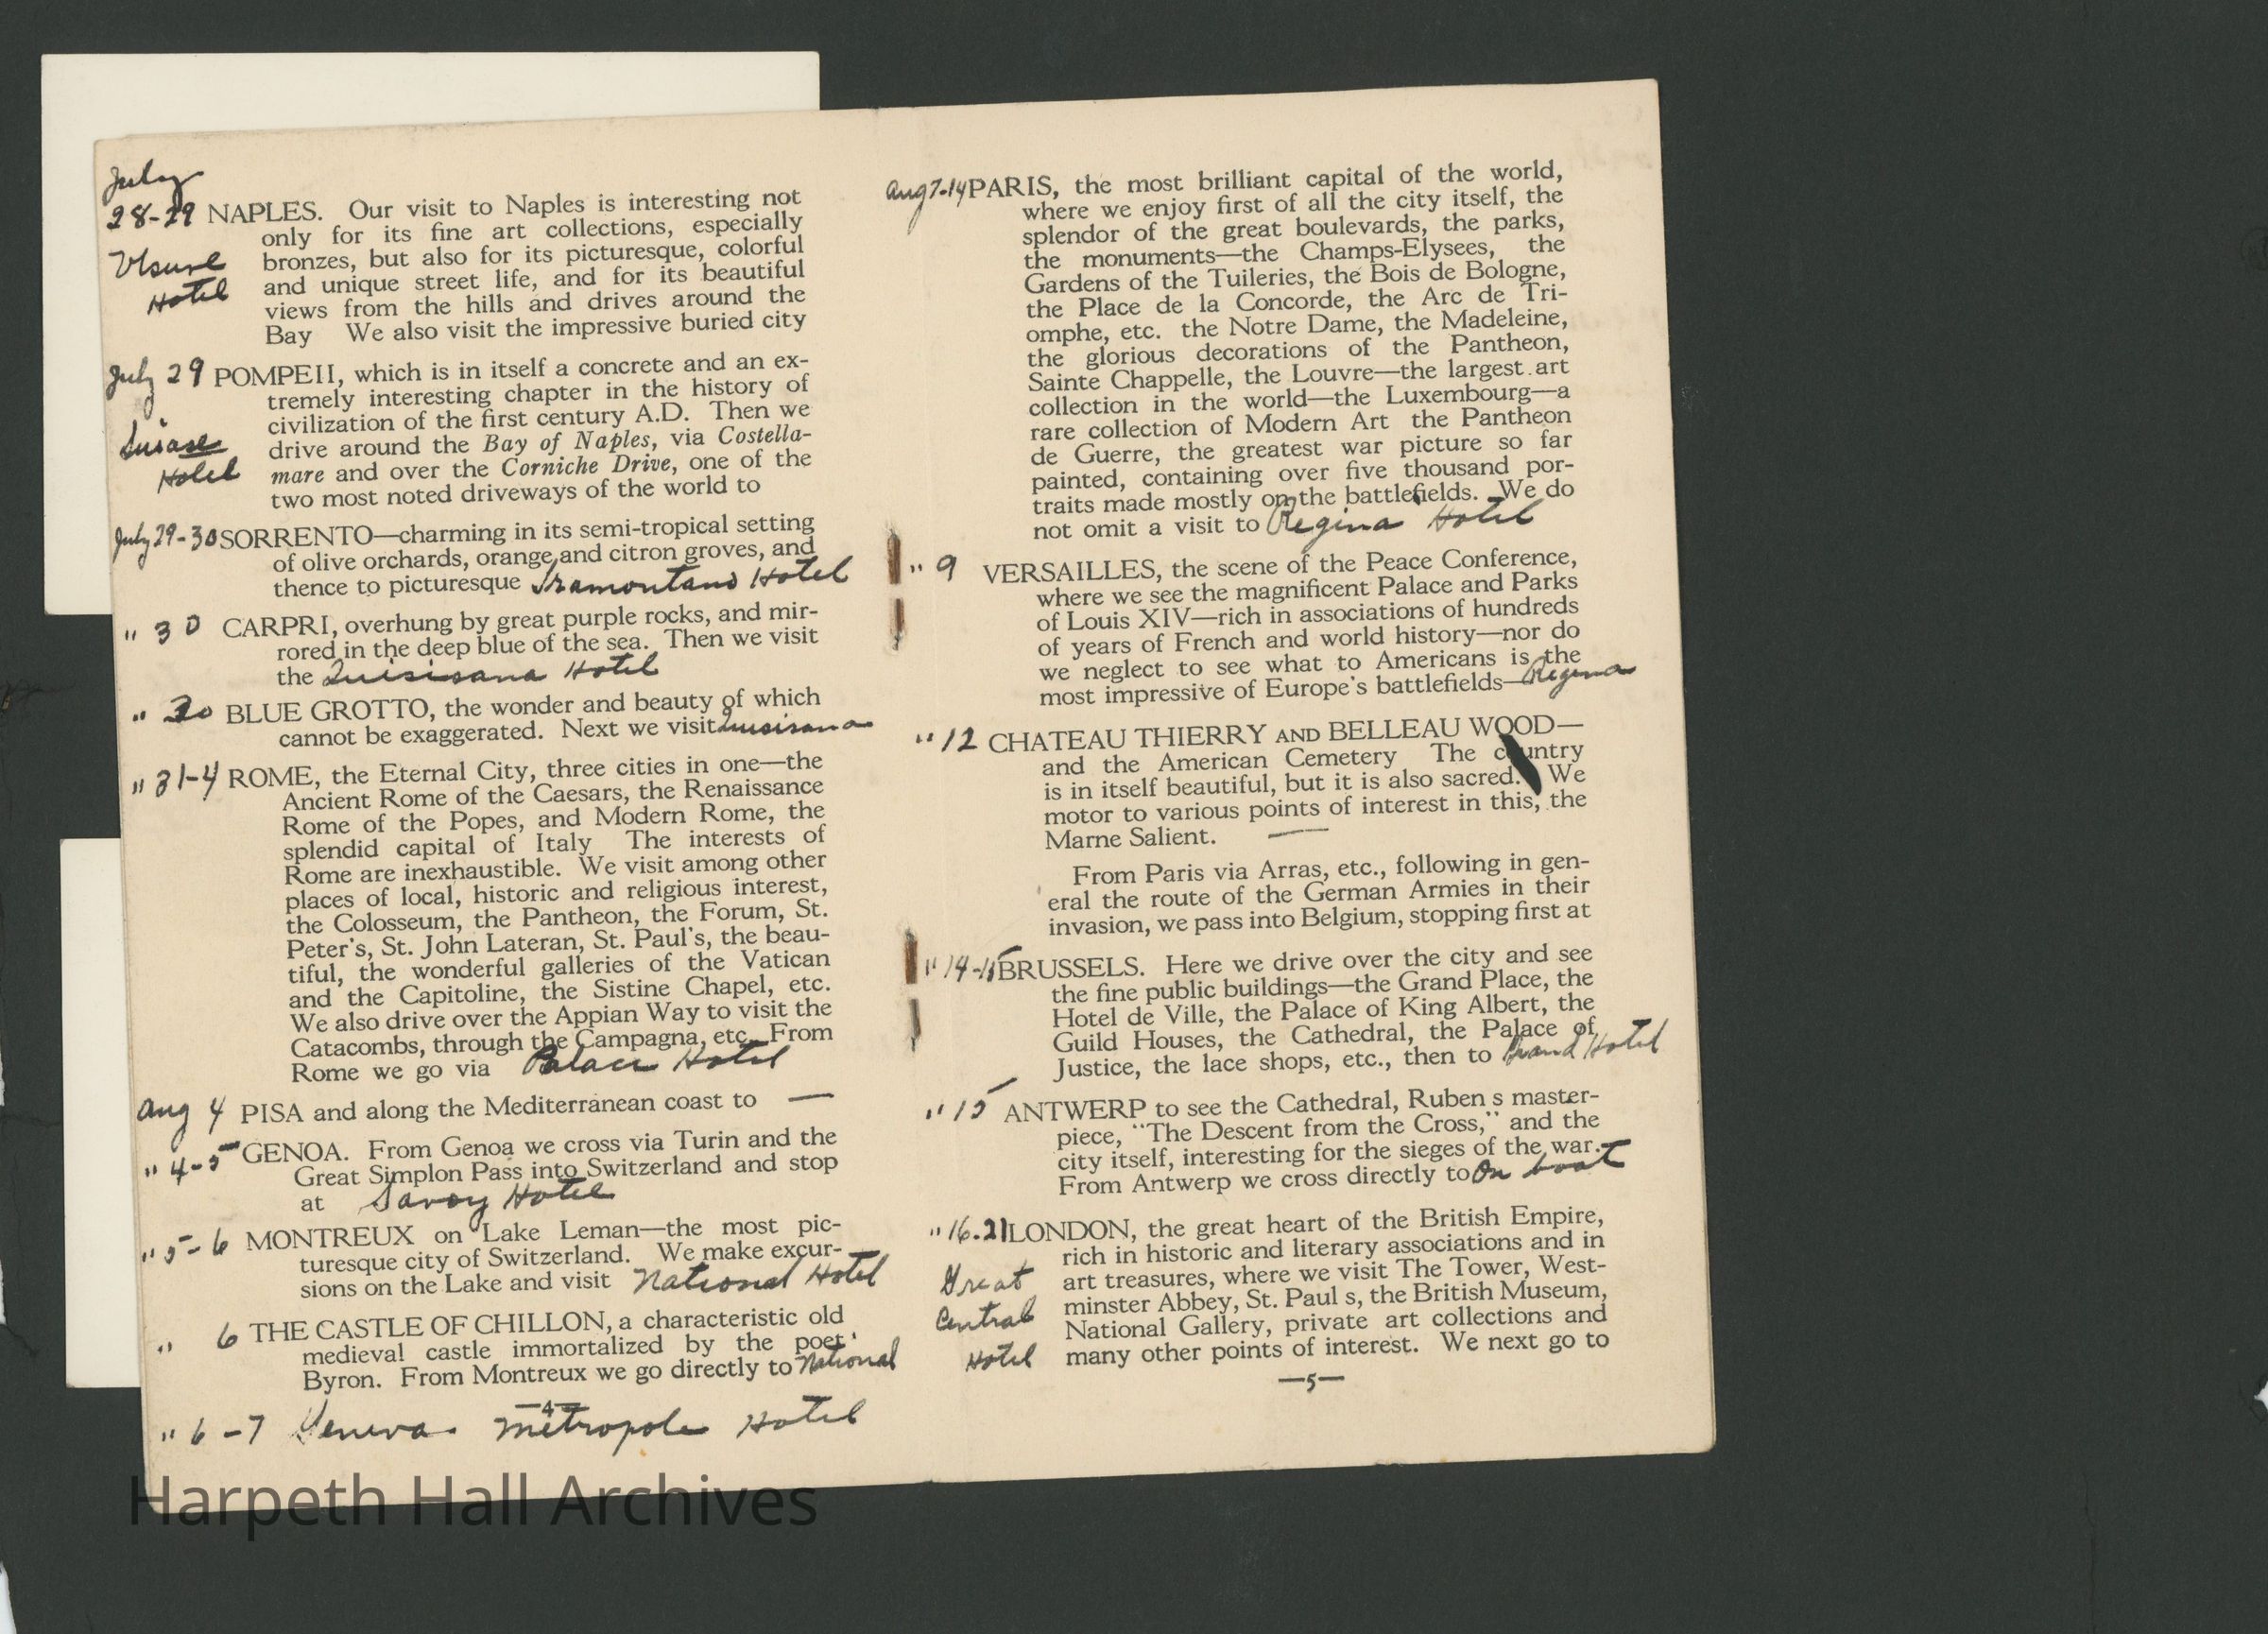 July
28-29 NAPLES. Our visit to Naples is interesting not
only for its fine art collections, especially
bronzes, but also for its picturesque, colorful
and unique street life, and for its beautiful
views from the hills and drives around the
Bay We also visit the impressive buried city
Hotel
July 29 POMPEII, which is in itself a concrete and an ex-
tremely interesting chapter in the history of
civilization of the first century A.D. Then we
drive around the Bay of Naples, via Costella-
mare and over the Corniche Drive, one of the
two most noted driveways of the world to
Hotel
July 29-30 SORRENTO—charming in its semi-tropical setting
of olive orchards, orange and citron groves, and
thence to picturesque Tramontano Hotel
" 30 CARPRI, overhung by great purple rocks, and mir-
rored in the deep blue of the sea. Then we visit
the Quisisana Hotel
" 30 BLUE GROTTO, the wonder and beauty of which
cannot be exaggerated. Next we visit
" 31-4 ROME, the Eternal City, three cities in one—the
Ancient Rome of the Caesars, the Renaissance
Rome of the Popes, and Modern Rome, the
splendid capital of Italy The interests of
Rome are inexhaustible. We visit among other
places of local, historic and religious interest,
the Colosseum, the Pantheon, the Forum, St.
Peter's, St. John Lateran, St. Paul's, the beau-
tiful, the wonderful galleries of the Vatican
and the Capitoline, the Sistine Chapel, etc.
We also drive over the Appian Way to visit the
Catacombs, through the Campagna, etc. From
Rome we go via Palace Hotel
Aug 4 PISA and along the Mediterranean coast to —
" 4-5 GENOA. From Genoa we cross via Turin and the
Great Simplon Pass into Switzerland and stop
at Savoy Hotel
" 5-6 MONTREUX on Lake Leman—the most pic-
turesque city of Switzerland. We make excur-
sions on the Lake and visit National Hotel
" 6 THE CASTLE OF CHILLON, a characteristic old
medieval castle immortalized by the poet
Byron. From Montreux we go directly to National
—4—
" 6-7 Geneva. Metropole Hotel
Aug 7-14 PARIS, the most brilliant capital of the world,
where we enjoy first of all the city itself, the
splendor of the great boulevards, the parks,
the monuments—the Champs-Elysees, the
Gardens of the Tuileries, the Bois de Bologne,
the Place de la Concorde, the Arc de Tri-
omphe, etc. the Notre Dame, the Madeleine,
the glorious decorations of the Pantheon,
Sainte Chappelle, the Louvre—the largest art
collection in the world—the Luxembourg—a
rare collection of Modern Art the Pantheon
de Guerre, the greatest war picture so far
painted, containing over five thousand por-
traits made mostly on the battlefields. We do
not omit a visit to Regina Hotel
" 9 VERSAILLES, the scene of the Peace Conference,
where we see the magnificent Palace and Parks
of Louis XIV—rich in associations of hundreds
of years of French and world history—nor do
we neglect to see what to Americans is the
most impressive of Europe's battlefields—Regina
" 12 CHATEAU THIERRY AND BELLEAU WOOD—
and the American Cemetery The country
is in itself beautiful, but it is also sacred. We
motor to various points of interest in this, the
Marne Salient. —
From Paris via Arras, etc., following in gen-
eral the route of the German Armies in their
invasion, we pass into Belgium, stopping first at
" 14-15 BRUSSELS. Here we drive over the city and see
the fine public buildings—the Grand Place, the
Hotel de Ville, the Palace of King Albert, the
Guild Houses, the Cathedral, the Palace of
Justice, the lace shops, etc., then to Grand Hotel
" 15 ANTWERP to see the Cathedral, Ruben s master-
piece, "The Descent from the Cross," and the
city itself, interesting for the sieges of the war.
From Antwerp we cross directly to On boat
" 16-21 LONDON, the great heart of the British Empire,
rich in historic and literary associations and in
Great art treasures, where we visit The Tower, West-
Central minster Abbey, St. Paul s, the British Museum,
National Gallery, private art collections and
Hotel many other points of interest. We next go to
—5—
Harpeth Hall Archives